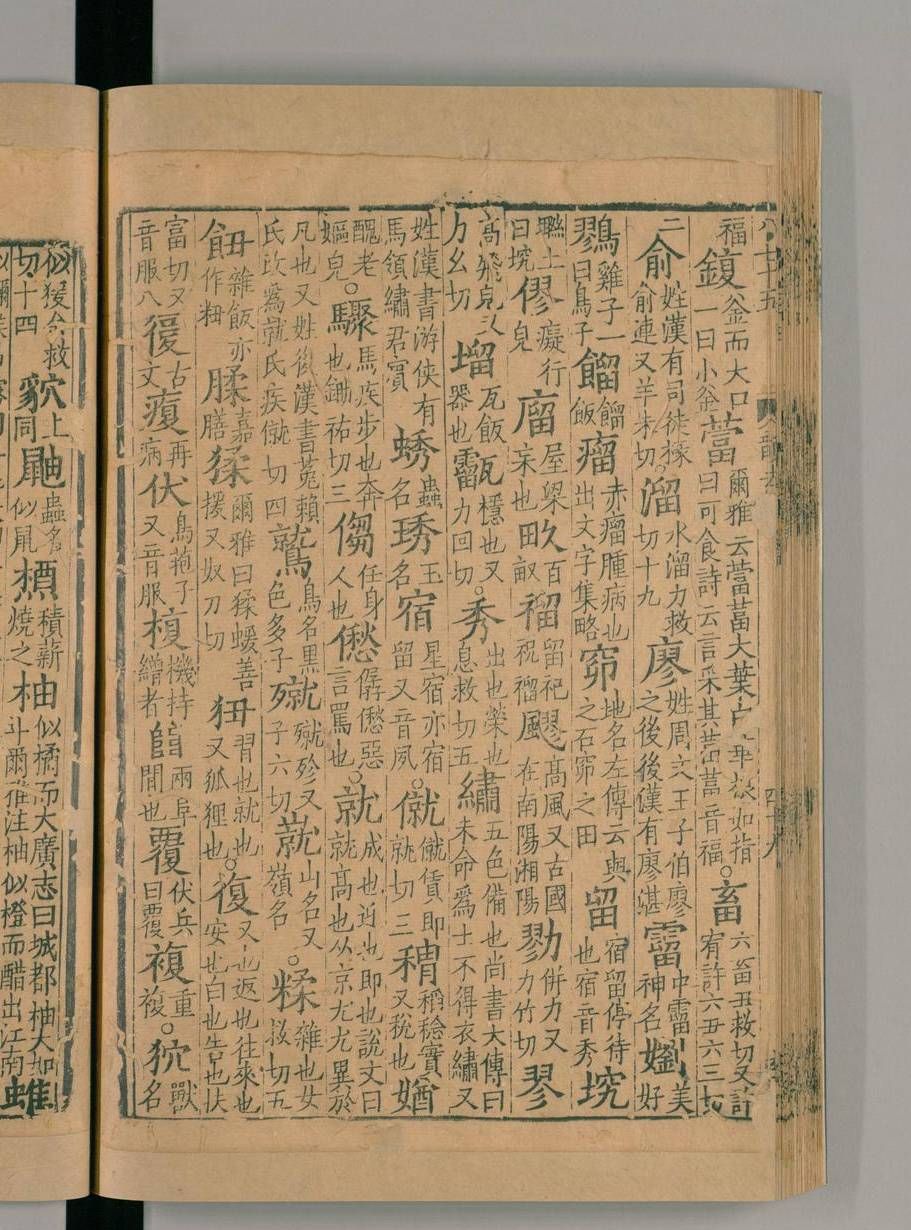 福鍑釜而大口一曰小釜葍爾雅云葍藑大葉白華根如指曰可食詩云言采其葍葍音福○畜六畜丑救切又許宥許六丑六三切
二俞姓漢有司徒掾俞連又羊朱切○溜水溜力救切十九廖姓周文王子伯廖之後後漢有廖湛霤中霤神名嬼美好
鷚雞子一曰鳥子餾餾飯瘤赤瘤腫病也出文字集略窌地名左傳云與之石窌之田留宿留停待也宿音秀
僇癡行皃廇屋梁也百畝䄂留祀祝䄂飂高風又古國在南陽湘陽勠併力又力竹切翏
高飛皃又力幺切塯瓦飯器也瓦穩也又力回切○秀出也榮也息救切五繡五色備也尚書大傳曰未命爲士不得衣繡又
姓漢書游俠有馬領繡君賓蜏蟲名琇玉名宿星宿亦宿留又音夙○僦僦賃即就切三稻稔實又稅也媨
醜老嫗皃○驟馬疾步也奔也鋤祐切三㑳任身人也僽僝僽惡言罵也○就成也迎也即也說文曰就高也从京尤尤異於
凡也又姓後漢書菟賴氏改爲就氏疾僦切四鷲鳥名黑色多子殧殧殄又子六切山名又嶺名○糅雜也女救切五
飿雜飯亦作粈腬嘉膳猱爾雅曰猱蝯善援又奴刀切狃習也就也又狐狸也○復又也返也往來也安也白也告也扶
富切又音服八古文再病伏鳥菢子又音服機持繒者兩阜間也覆伏兵曰覆複重複○狖獸名
似猨余救切十四上同鼬蟲名似鼠槱積薪燒之柚似橘而大廣志曰城都柚大如斗爾雅注柚似橙而醋出江南蜼